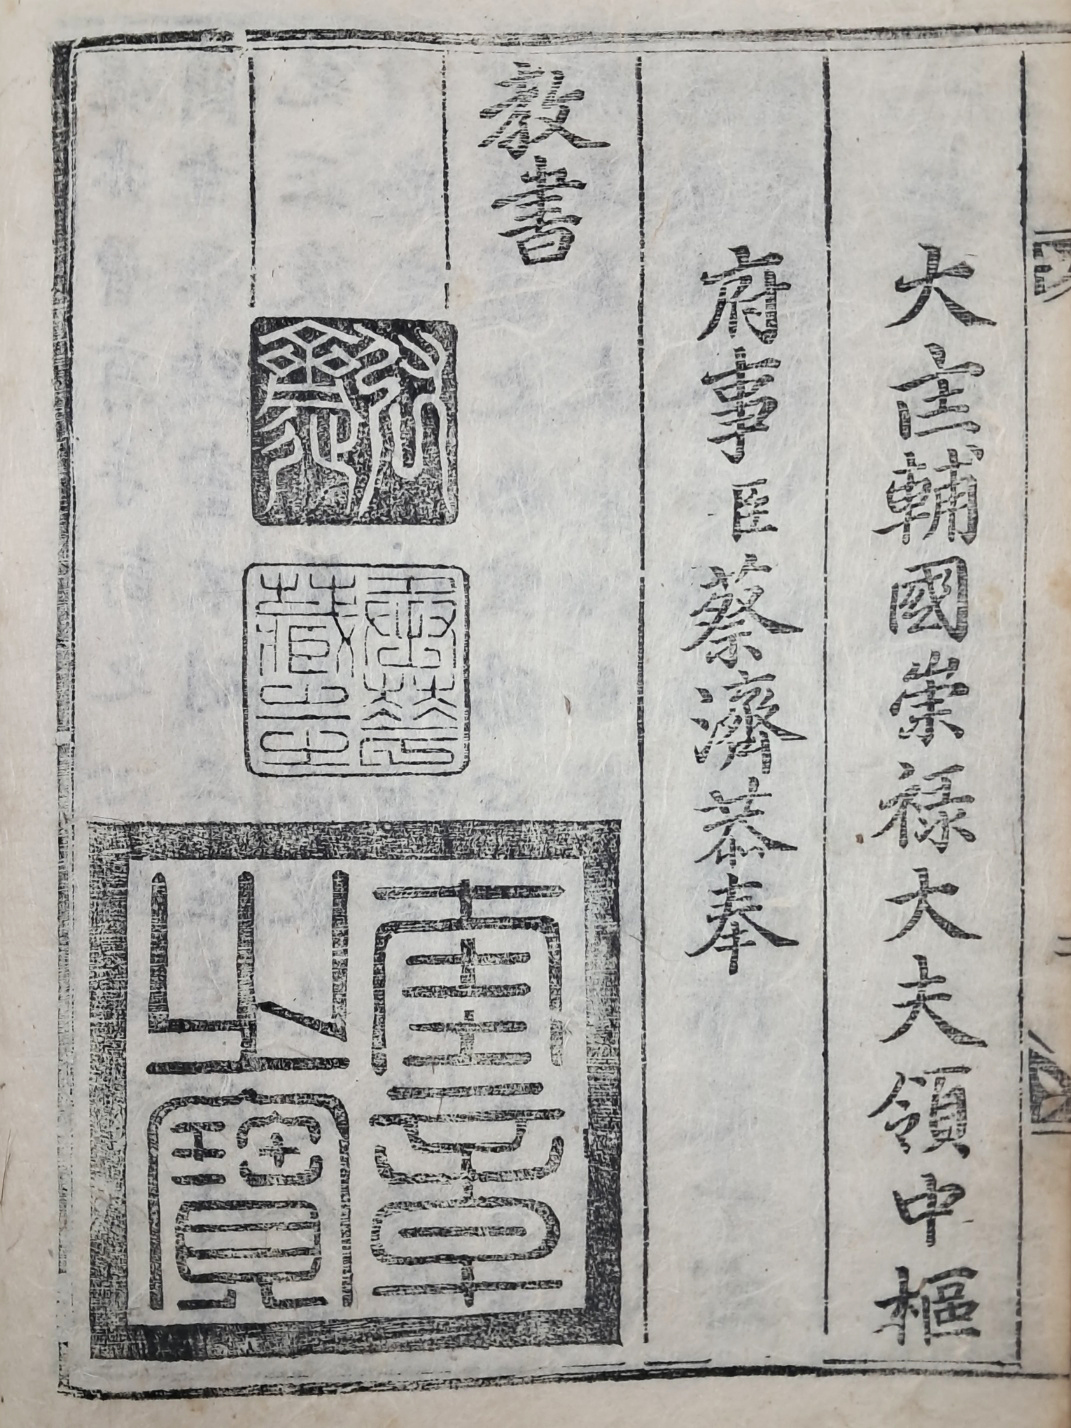 大匡輔國崇禄大夫領中樞
府事臣蔡濟恭奉
教書
弘齋
奎章之寶